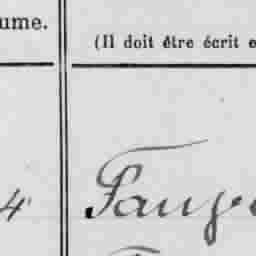 ume.
(Il doit être écrit e
4
Fauge